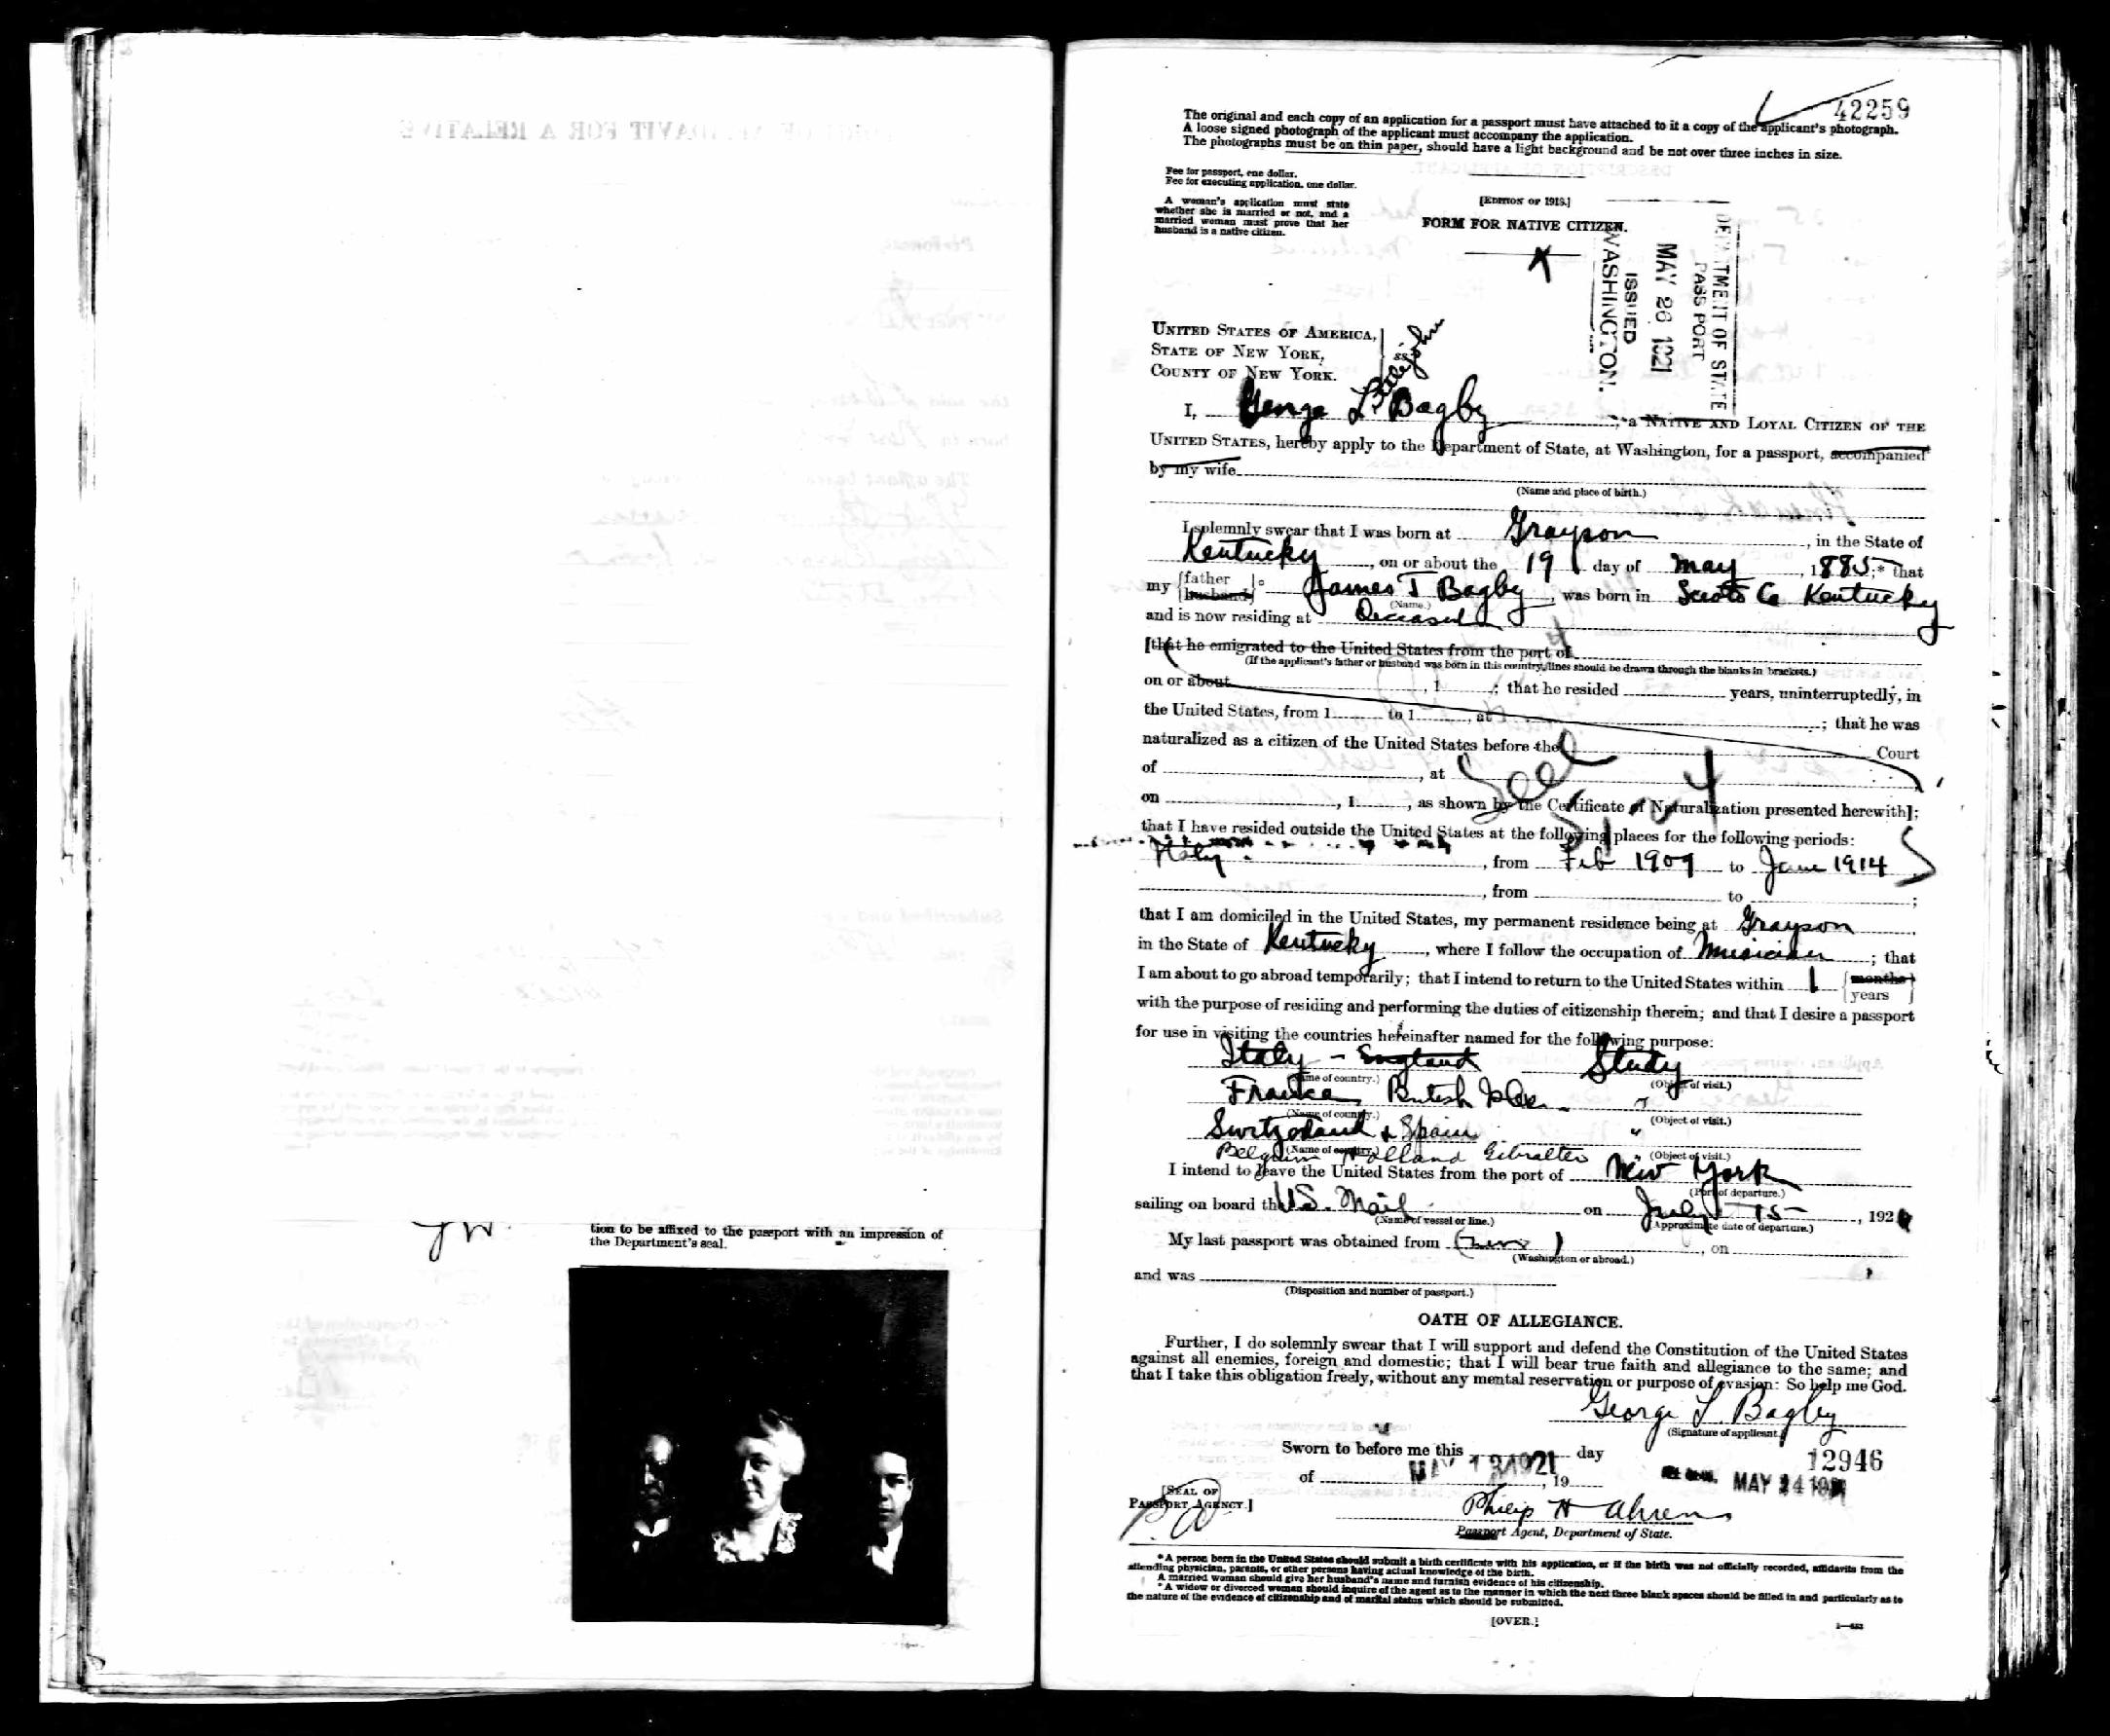 tion to be affixed to the passport with an impression of
the Department's seal.
42259
The original and each copy of an application for a passport must have attached to it a copy of the applicant's photograph.
A loose signed photograph of the applicant must accompany the application.
The photographs must be on thin paper, should have a light background and be not over three inches in size.
Fee for passport, one dollar.
Fee for executing application, one dollar.
A woman's application must state
whether she is married or not, and a
married woman must prove that her
husband is a native citizen.
[EDITION OF 1918.]
FORM FOR NATIVE CITIZEN.
DEPARTMENT OF STATE
PASSPORT
MAY 26 1921
ISSUED
WASHINGTON.
UNITED STATES OF AMERICA,
STATE OF NEW YORK,
COUNTY OF NEW YORK.
ss.
I, George L. Bagby, a NATIVE AND LOYAL CITIZEN OF THE
UNITED STATES, hereby apply to the Department of State, at Washington, for a passport, accompanied
by my wife
(Name and place of birth.)
I solemnly swear that I was born at Grayson, in the State of
Kentucky, on or about the 19 day of May, 1885;* that
my {father husband} James T Bagby, was born in Co Kentucky
(Name.)
and is now residing at Deceased
[that he emigrated to the United States from the port of
(If the applicant's father or husband was born in this country, lines should be drawn through the blanks in brackets.)
on or about , 1 ; that he resided years, uninterruptedly, in
the United States, from 1 to 1 , at ; that he was
naturalized as a citizen of the United States before the Court
of , at
on , 1 , as shown by the Certificate of Naturalization presented herewith];
that I have resided outside the United States at the following places for the following periods:
Italy, from Feb 1909 to June 1914
, from to ;
that I am domiciled in the United States, my permanent residence being at Grayson
in the State of Kentucky, where I follow the occupation of Musician; that
I am about to go abroad temporarily; that I intend to return to the United States within 1 {months years}
with the purpose of residing and performing the duties of citizenship therein; and that I desire a passport
for use in visiting the countries hereinafter named for the following purpose:
Italy - England Study
(Name of country.) (Object of visit.)
France British Isles "
(Name of country.) (Object of visit.)
Switzerland & Spain "
Belgium Holland Gibralter
(Name of country.) (Object of visit.)
I intend to leave the United States from the port of New York
(Port of departure.)
sailing on board the U.S. Mail on July 15, 1921
(Name of vessel or line.) (Approximate date of departure.)
My last passport was obtained from , on
(Washington or abroad.)
and was
(Disposition and number of passport.)
OATH OF ALLEGIANCE.
Further, I do solemnly swear that I will support and defend the Constitution of the United States
against all enemies, foreign and domestic; that I will bear true faith and allegiance to the same; and
that I take this obligation freely, without any mental reservation or purpose of evasion: So help me God.
George L. Bagby
(Signature of applicant.)
Sworn to before me this day
12946
of MAY 13 1921, 19
MAY 24 1921
[SEAL OF
PASSPORT AGENCY.]
Philip H Ahrens
Passport Agent, Department of State.
*A person born in the United States should submit a birth certificate with his application, or if the birth was not officially recorded, affidavits from the
attending physician, parents, or other persons having actual knowledge of the birth.
A married woman should give her husband's name and furnish evidence of his citizenship.
*A widow or divorced woman should inquire of the agent as to the manner in which the next three blank spaces should be filled in and particularly as to
the nature of the evidence of citizenship and of marital status which should be submitted.
[OVER.]